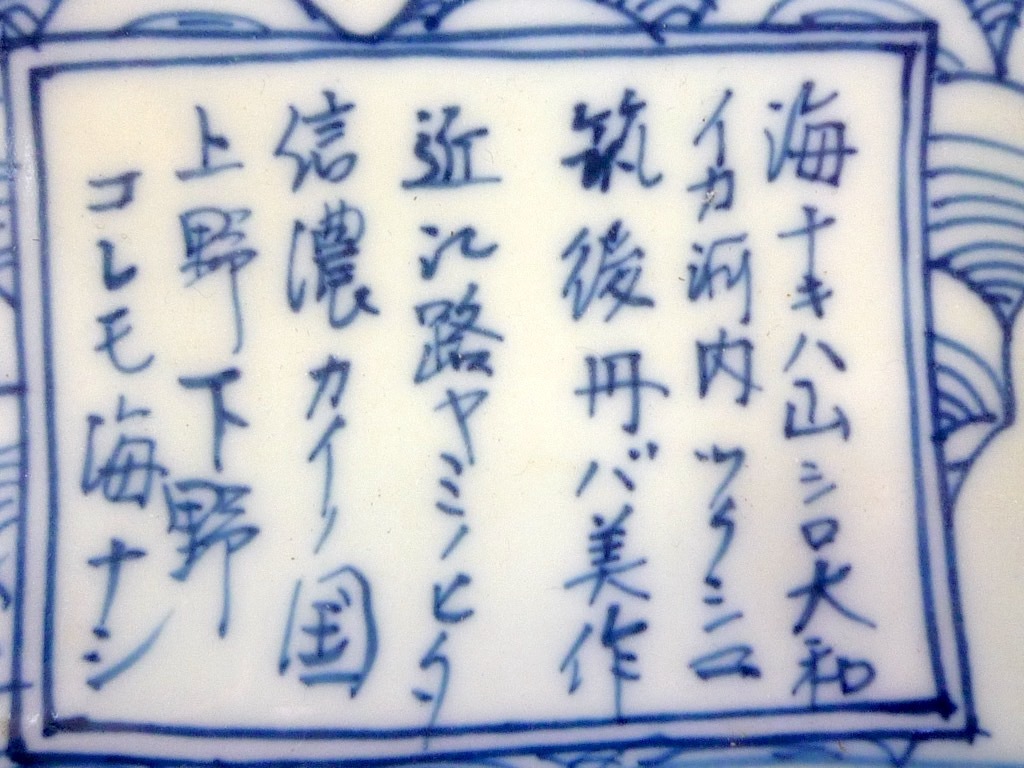 海ナキハ山シロ大和
イカ河内ツクシニ
筑後丹バ美作
近江路ヤミノヒタ
信濃カイノ国
上野下野
コレモ海ナシ